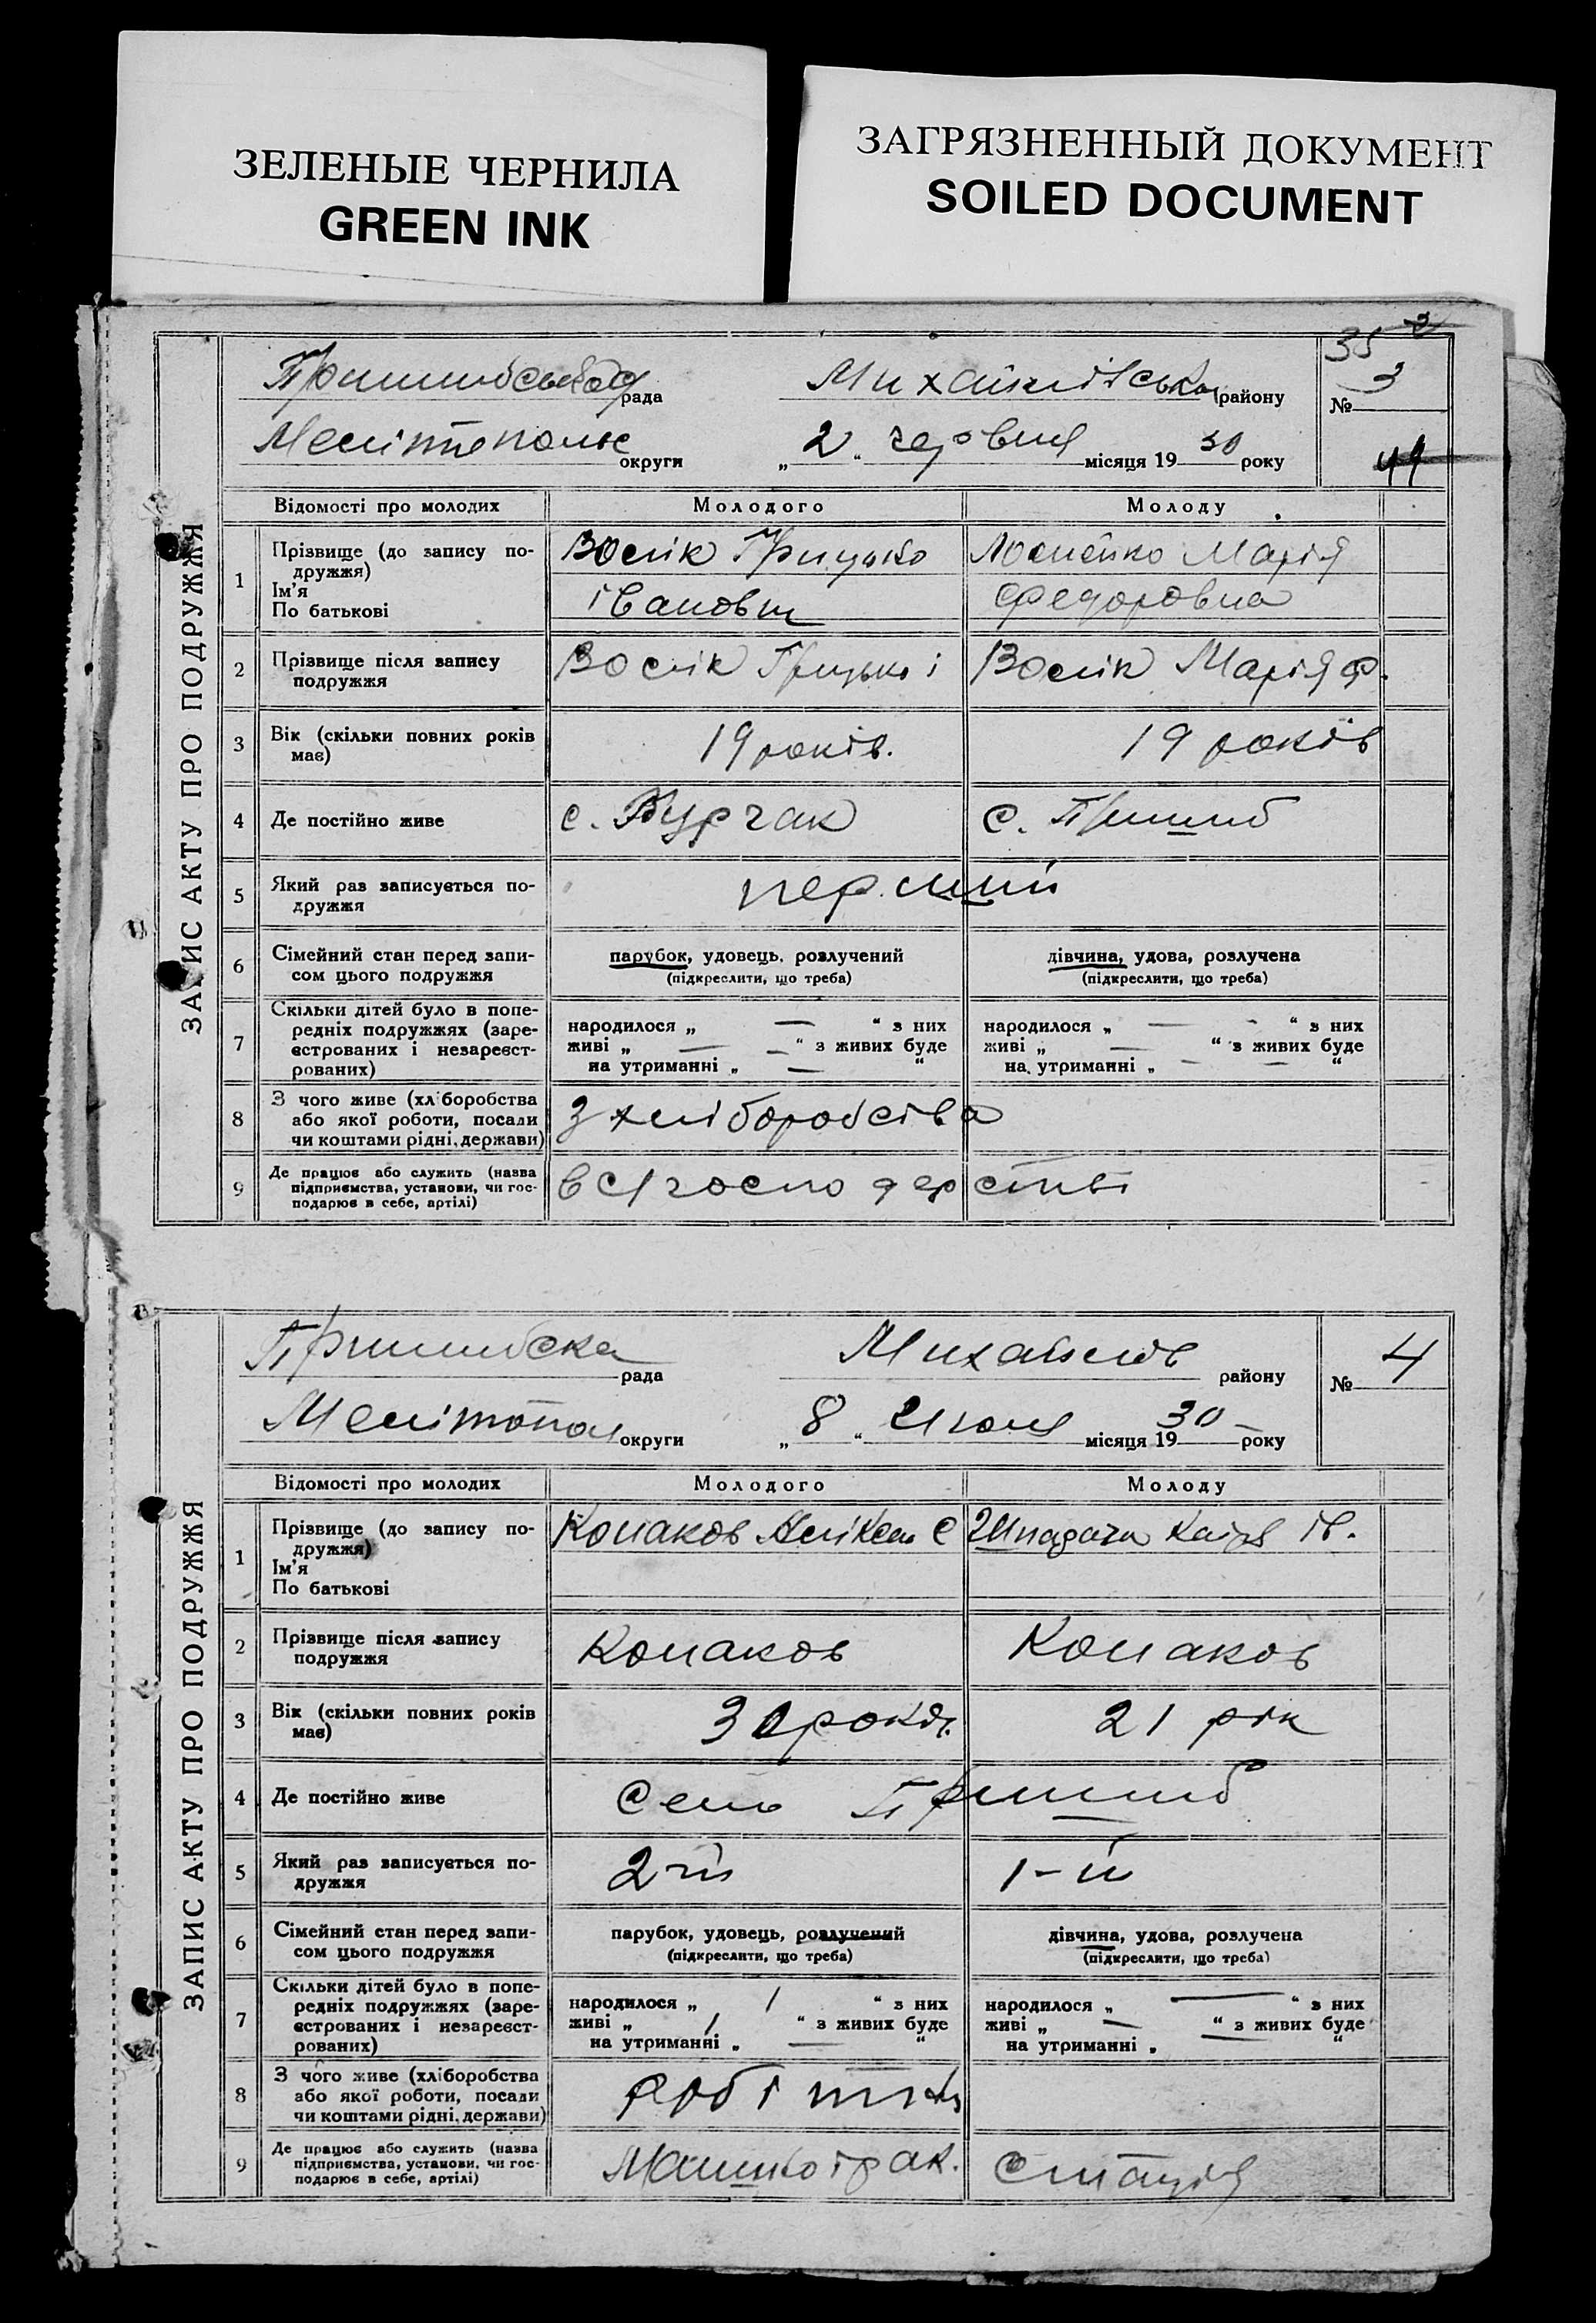 ЗЕЛЕНЫЕ ЧЕРНИЛА
GREEN INK
ЗАГРЯЗНЕННЫЙ ДОКУМЕНТ
SOILED DOCUMENT
ЗАПИС АКТУ ПРО ПОДРУЖЖЯ
35
рада
району
№ 3
округи „ 2 “ червня місяця 19 30 року
44
Відомості про молодих Молодого Молоду
1 Прізвище (до запису по-
дружжя)
Ім'я
По батькові
Грицько Марія
Іванович Федоровна
2 Прізвище після запису
подружжя
Грицько і Марія Ф.
3 Вік (скільки повних років
має)
19 років. 19 років
4 Де постійно живе с. Бурчак с. Пришиб
5 Який раз записується по-
дружжя
перший
6 Сімейний стан перед запи-
сом цього подружжя
парубок, удовець, розлучений дівчина, удова, розлучена
(підкреслити, що треба) (підкреслити, що треба)
7 Скільки дітей було в попе-
редніх подружжях (заре-
єстрованих і незареєст-
рованих)
народилося „ — “ з них народилося „ — “ з них
живі „ — “ з живих буде живі „ — “ з живих буде
на утриманні „ — “ на утриманні „ — “
8 З чого живе (хліборобства
або якої роботи, посади
чи коштами рідні, держави)
З хліборобства
9 Де працює або служить (назва
підприємства, установи, чи гос-
подарює в себе, артілі)
в с/господарстві
ЗАПИС АКТУ ПРО ПОДРУЖЖЯ
Пришибска рада Михайлов району № 4
Мелітопол округи „ 8 “ Июня місяця 19 30 року
Відомості про молодих Молодого Молоду
1 Прізвище (до запису по-
дружжя)
Ім'я
По батькові
Конаков
2 Прізвище після запису
подружжя
Конаков Конаков
3 Вік (скільки повних років
має)
років. 21 рік
4 Де постійно живе Село Пришиб
5 Який раз записується по-
дружжя
2-ий 1-й
6 Сімейний стан перед запи-
сом цього подружжя
парубок, удовець, розлучений дівчина, удова, розлучена
(підкреслити, що треба) (підкреслити, що треба)
7 Скільки дітей було в попе-
редніх подружжях (заре-
єстрованих і незареєст-
рованих)
народилося „ 1 “ з них народилося „ — “ з них
живі „ 1 “ з живих буде живі „ — “ з живих буде
на утриманні „ — “ на утриманні „ “
8 З чого живе (хліборобства
або якої роботи, посади
чи коштами рідні, держави)
9 Де працює або служить (назва
підприємства, установи, чи гос-
подарює в себе, артілі)
станція